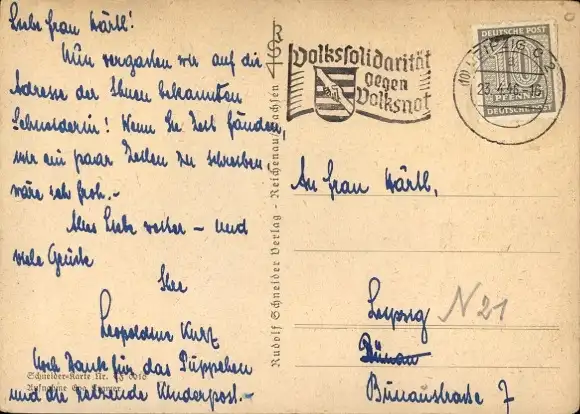 Liebe Frau Härtl!
Nun vergaßen wir auf die
Adresse der Ihnen bekannten
Schneiderin! Wenn Sie Zeit fänden,
mir ein paar Zeilen zu schreiben,
wäre ich froh.-
Alles Liebe weiter - und
viele Grüße
Ihre
Leopoldine Kurz
Hoch Dank für das Püppchen
und die reizende Kinderpost.-
Schneider-Karte Nr.
Aufnahme
Rudolf Schneider Verlag - Reichenau/Sachsen
RSV
Volkssolidarität
gegen
Volksnot
(10) LEIPZIG C 2
23.4.46.-16
DEUTSCHE POST
10
PFENNIG
DEUTSCHE POST
An Frau Härtl,
Leipzig N21
Bünau
Bünaustrasse 7